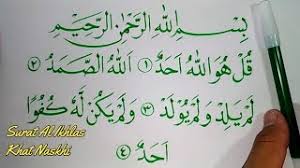 بِسْمِ اللهِ الرَّحْمٰنِ الرَّحِيْمِ
قُلْ هُوَ اللهُ أَحَدٌ ١ اَللهُ الصَّمَدُ ٢
لَمْ يَلِدْ وَلَمْ يُولَدْ ٣ وَلَمْ يَكُنْ لَهُ كُفُوًا
أَحَدٌ ٤
Surat Al Ikhlas
Khat Naskhi